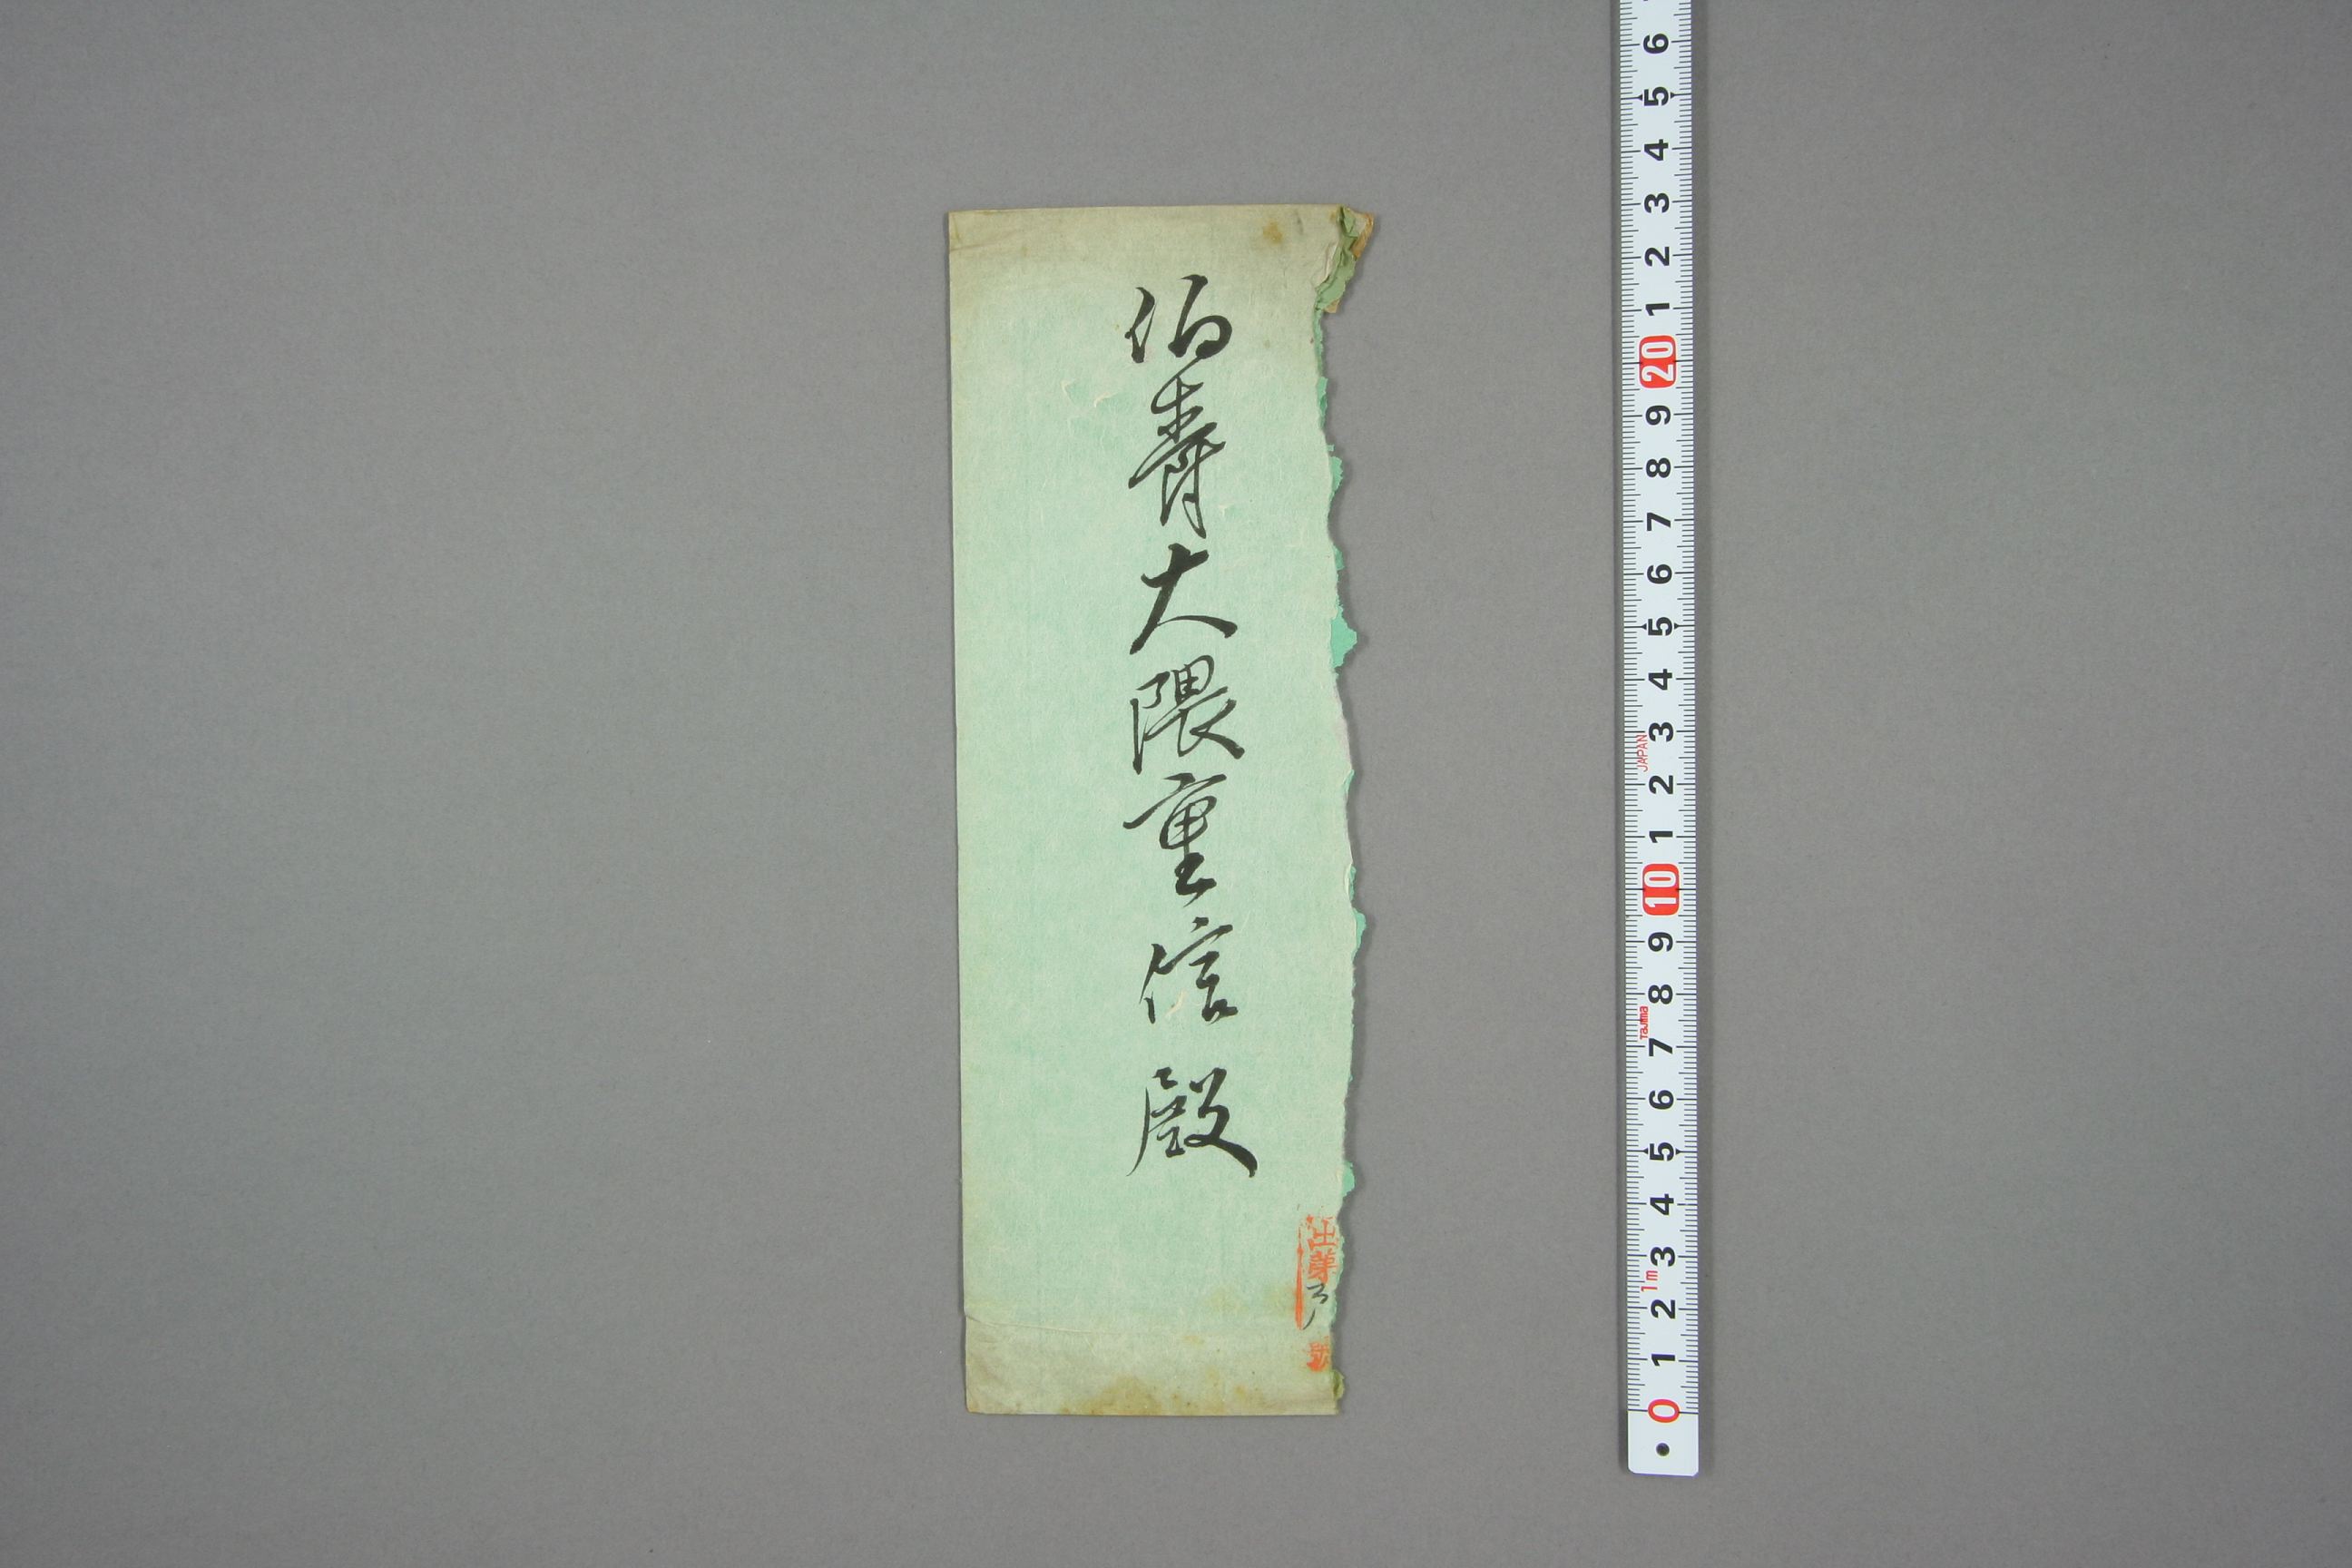 伯爵大隈重信殿
出第
号
6
5
4
3
2
1
20
9
8
7
6
5
4
3
2
1
10
9
8
7
6
5
4
3
2
1
0
JAPAN
Tajima
1m